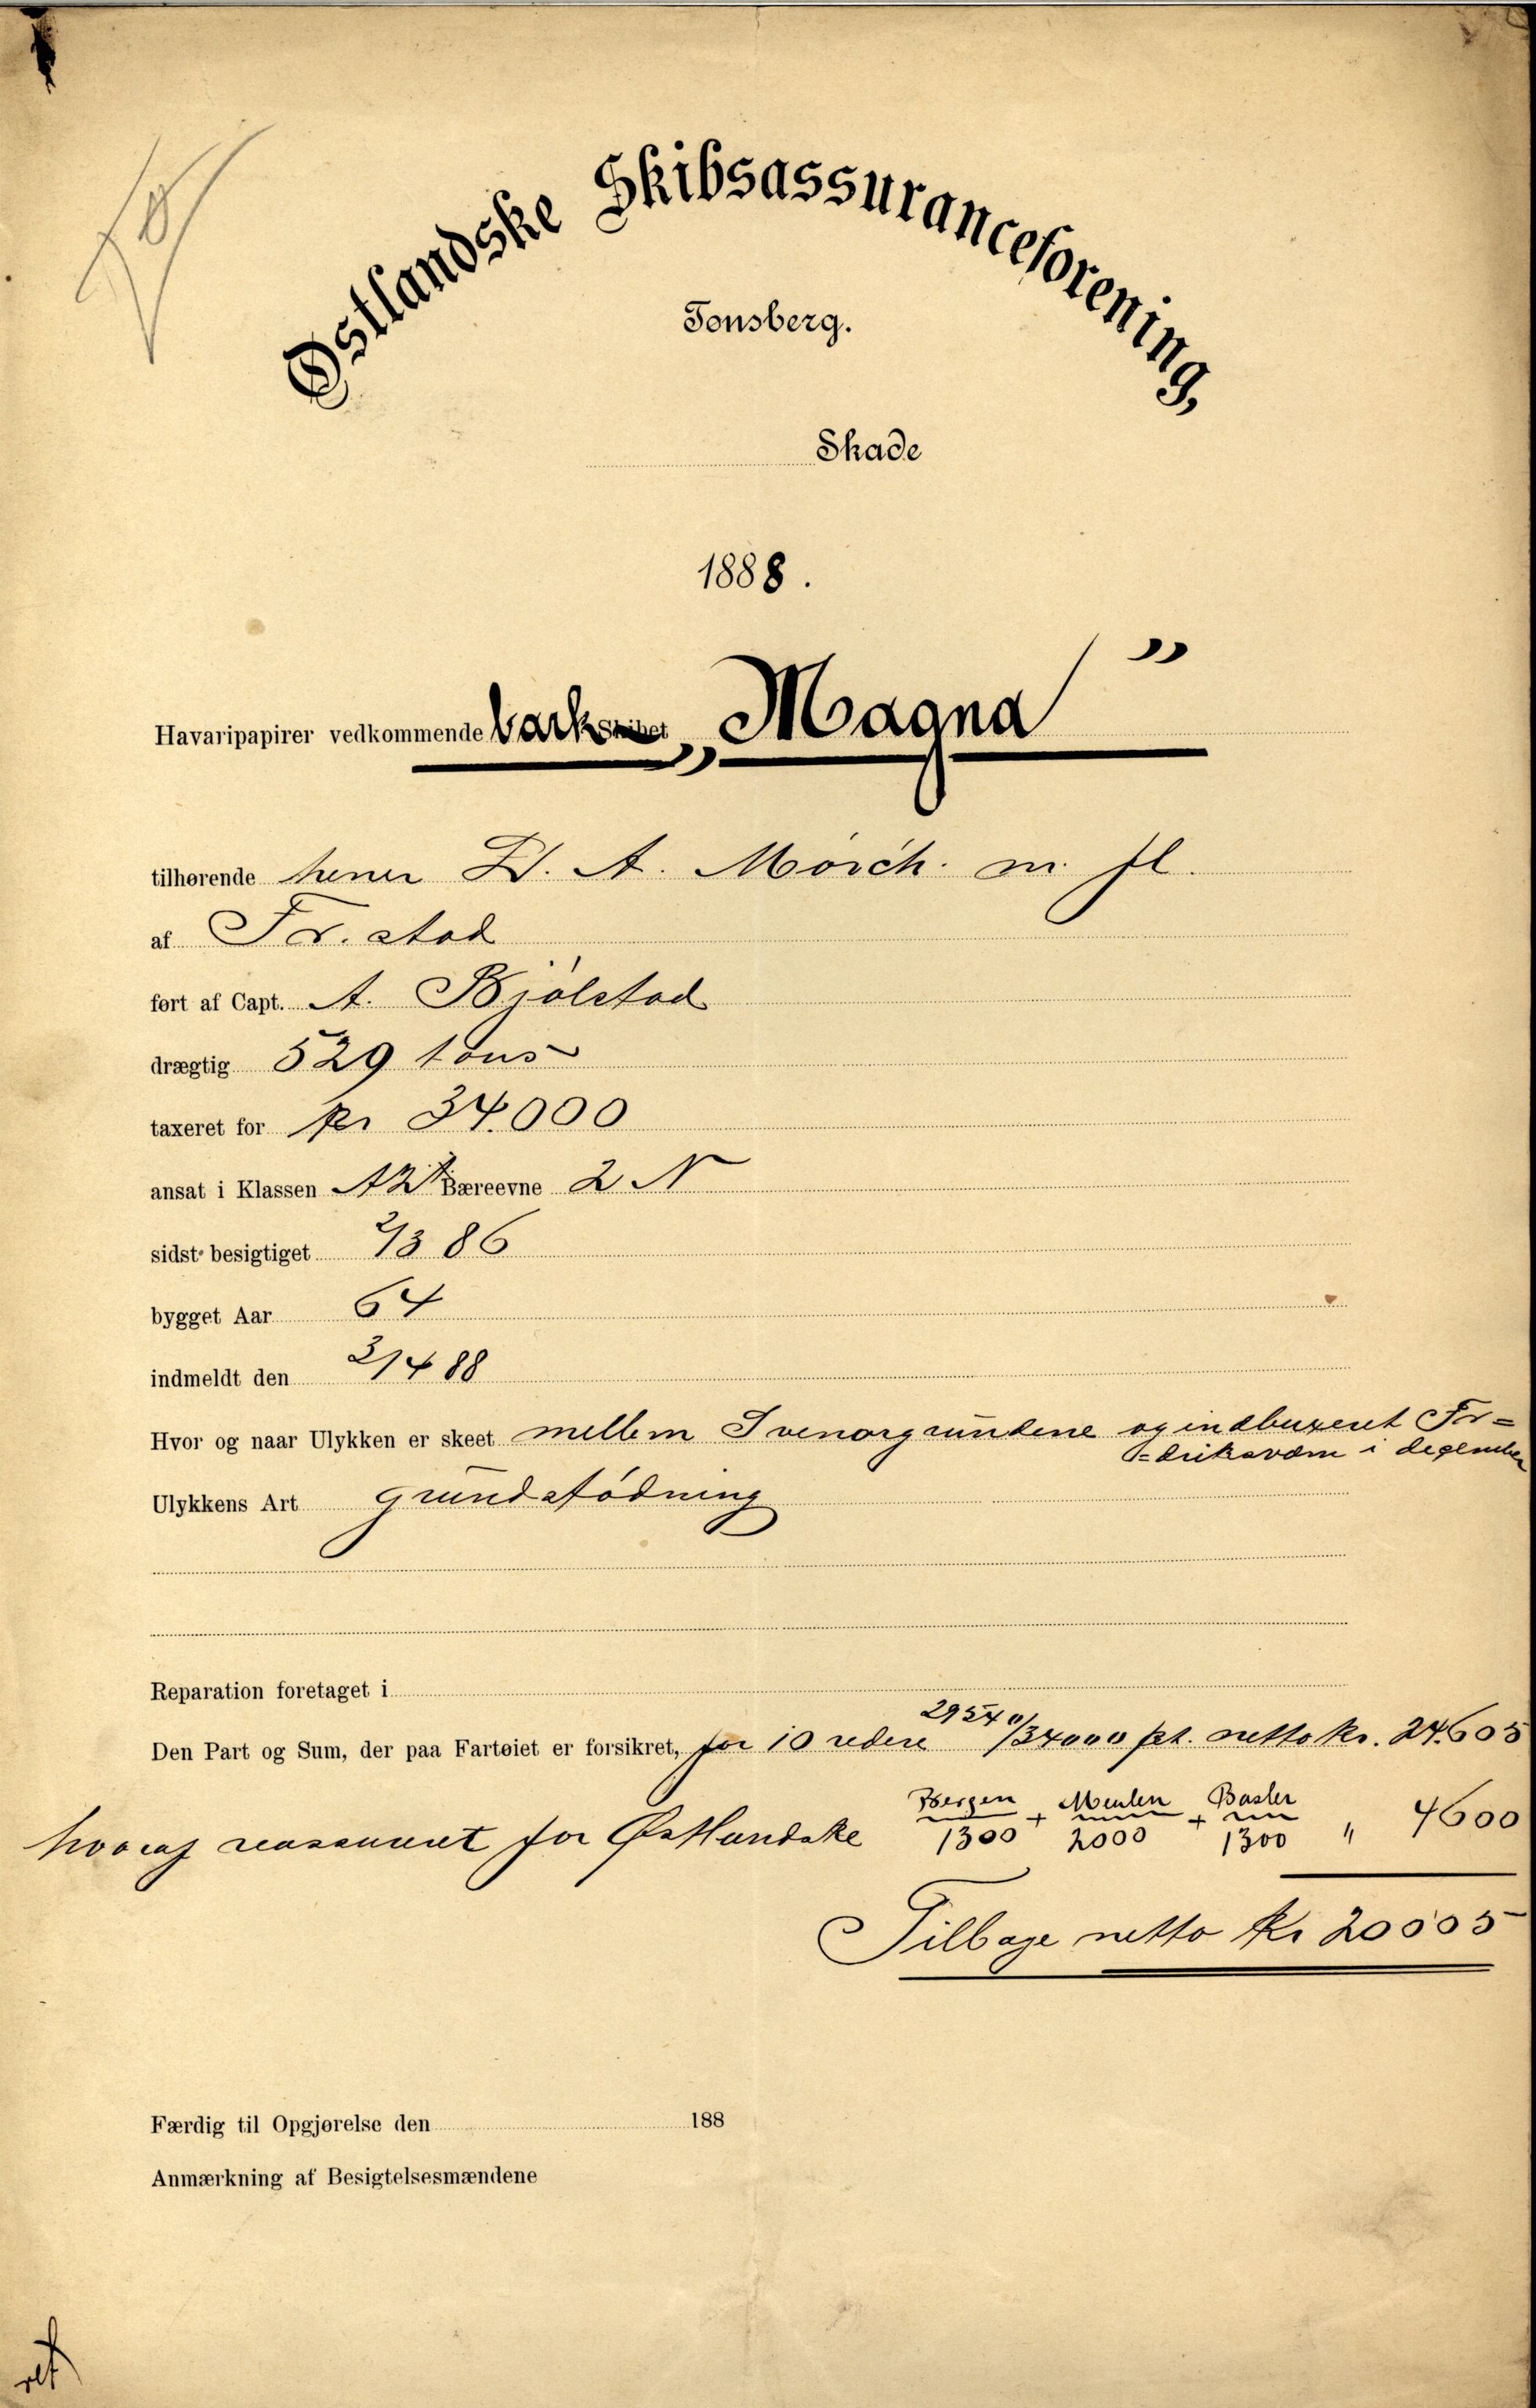 Østlandske Skibsassuranceforening,
Tønsberg.
Skade
1888.
Havaripapirer vedkommende bark Skibet „Magna”
tilhørende herrer A. Mørch. m. fl.
af Fr. stad
ført af Capt. A. Bjölstad
drægtig 529 tons
taxeret for kr 34.000
ansat i Klassen A2 Bæreevne 2 N
sidst besigtiget 2/3 86
bygget Aar 64
indmeldt den 3/4 88
Hvor og naar Ulykken er skeet mellem Svenörgrundene og indbuxeret Fr=
=driksværn i december
Ulykkens Art grundstödning
Reparation foretaget i
29540
Den Part og Sum, der paa Fartøiet er forsikret, for 10 redere /34000 pt. netto kr. 24.605
Bergen + Meulen + Basler
hvoraf reassureret for Østlandske 1300 2000 1300 " 4600
Tilbage netto kr 20005
Færdig til Opgjørelse den 188
Anmærkning af Besigtelsesmændene